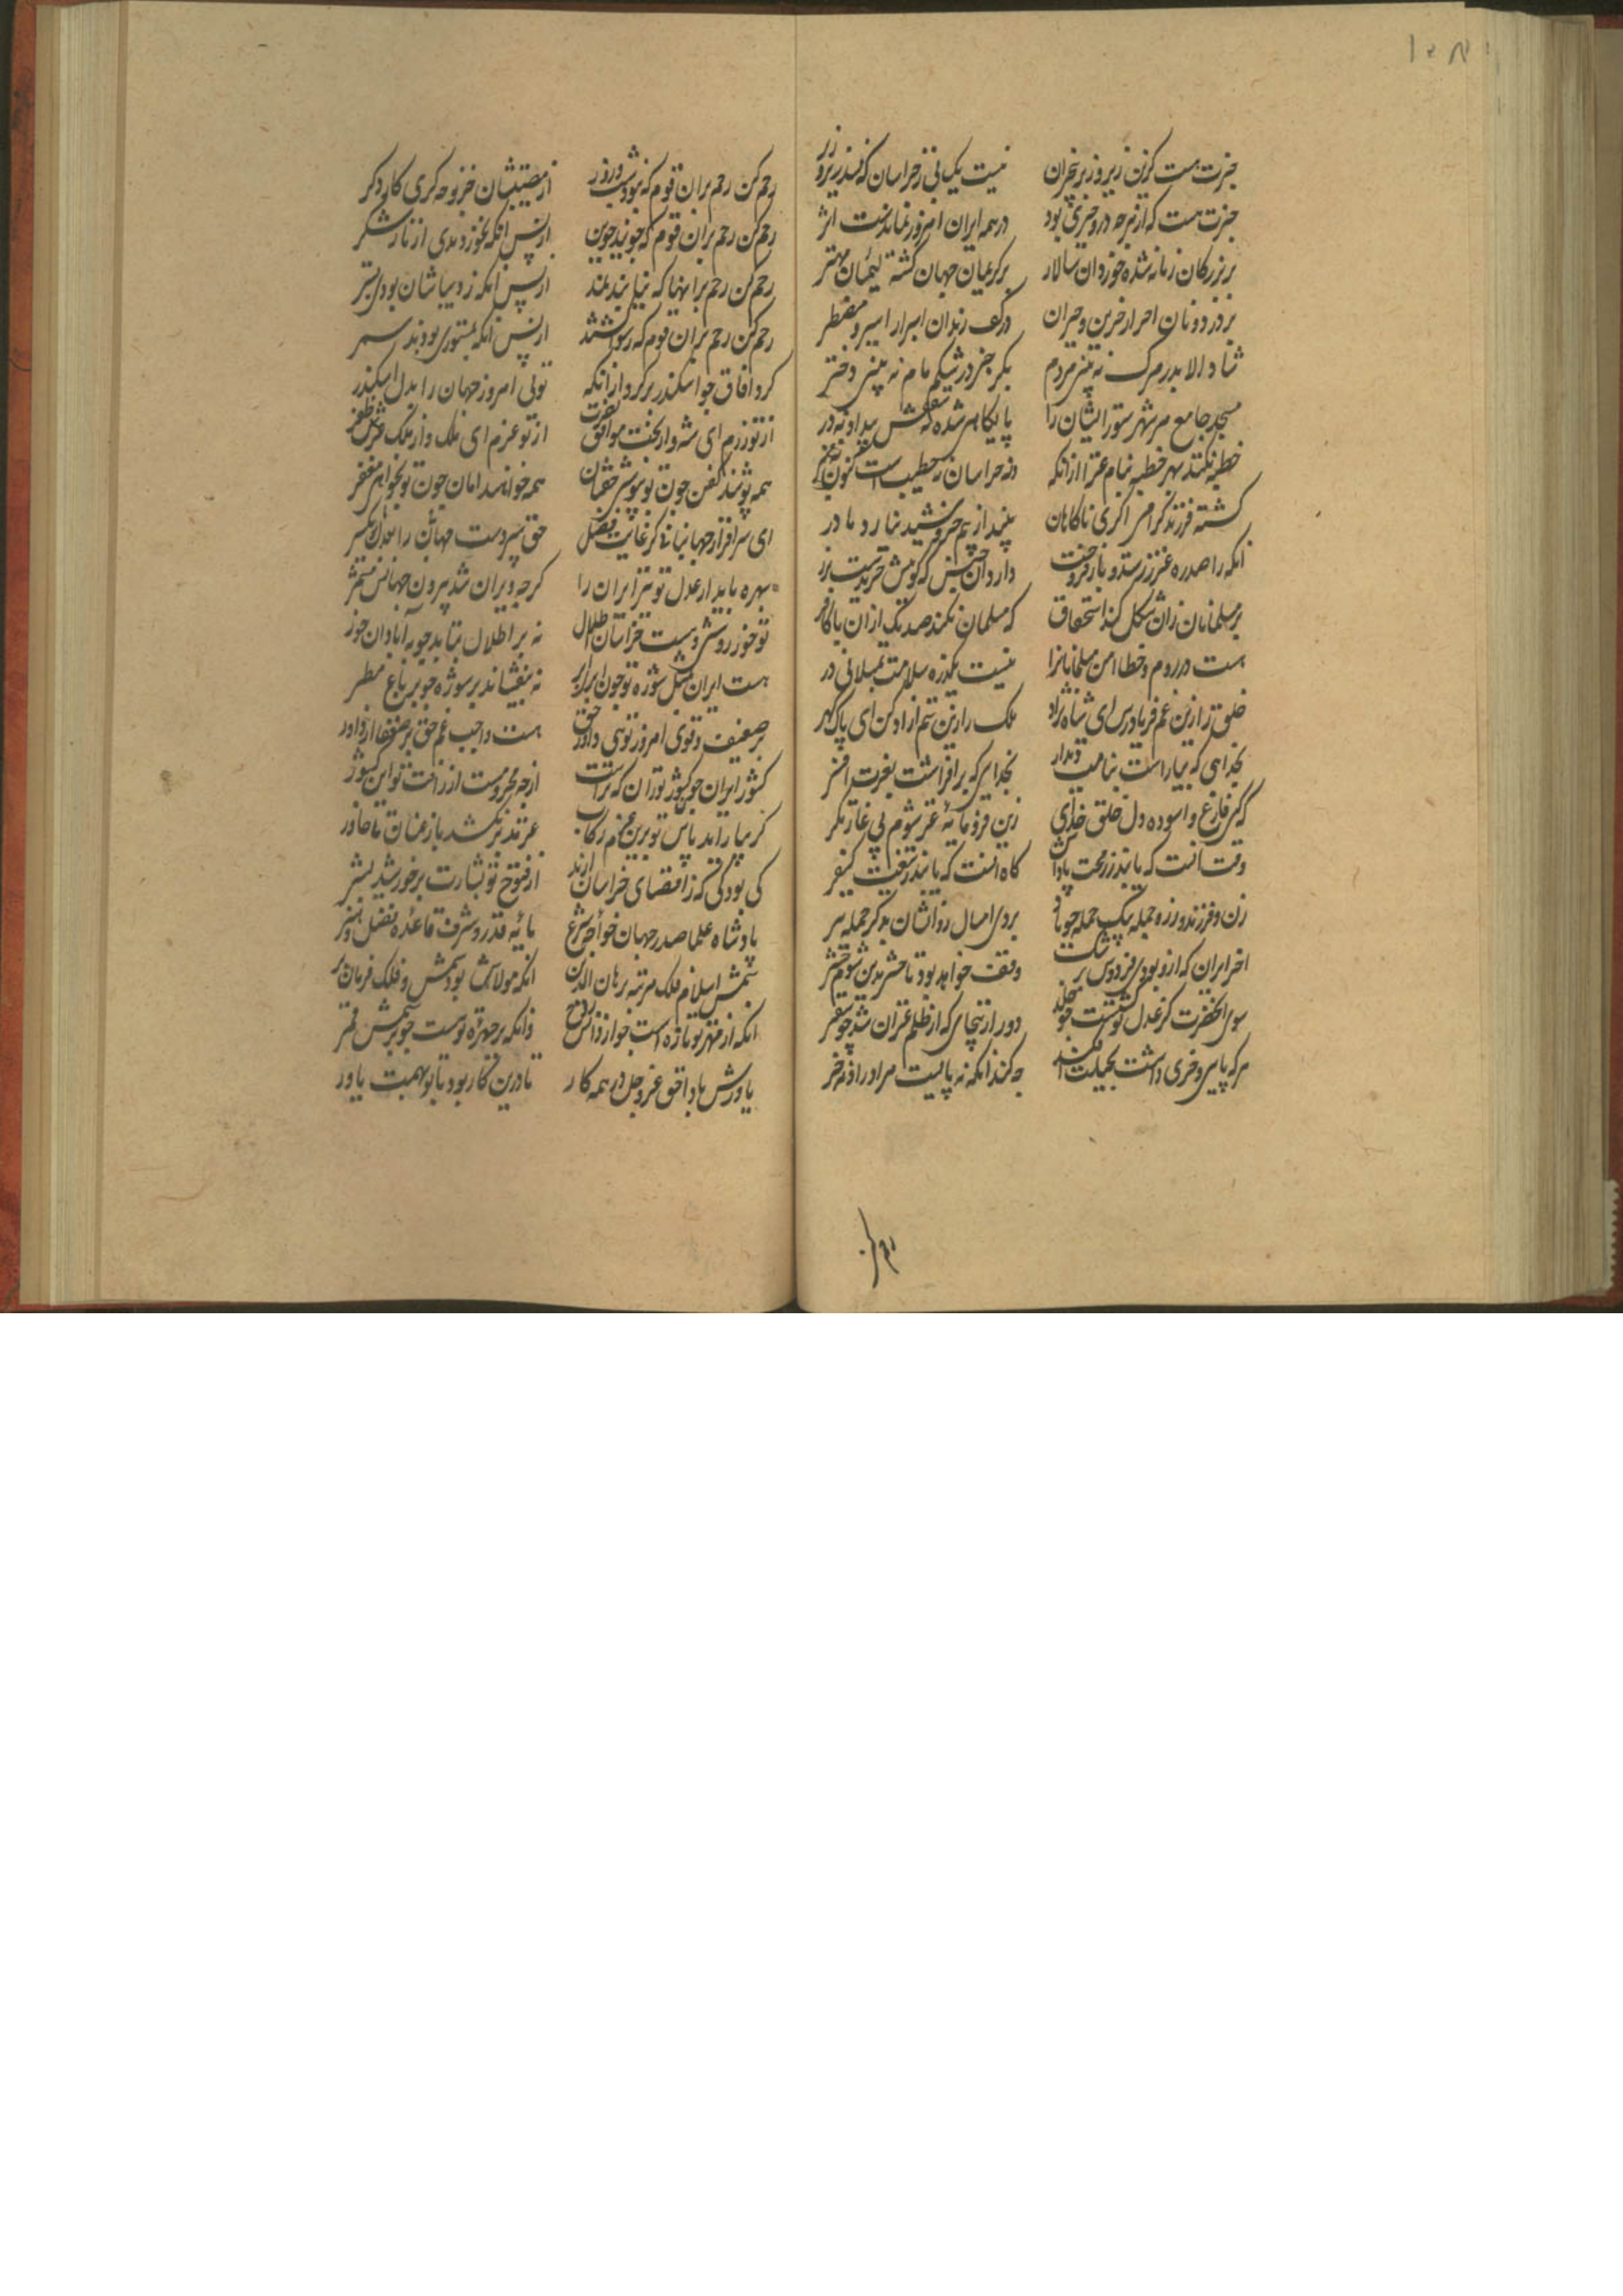 ۱۰۸
خبرت هست کزین زیر و زبر بی خبران نیست یک پی ز خراسان که نشد زیر و زبر
خبرت هست که از هر چه درو خیری بود در همه ایران امروز نماندست اثر
بر بزرگان زمانه شده خوردان سالار بر کریمان جهان گشته لئیمان مهتر
بر در دونان احرار حزین و حیران در کف رندان ابرار اسیر و مضطر
شاد الا بدر مرگ نه بینی مردم بکر جز در شکم مام نه بینی دختر
مسجد جامع هر شهر ستورایشان را پایگاهی شده نه سقفش پیدا و نه در
خطبه نکنند بهر خطه بنام غز از آنکه در خراسان نه خطیب است کنون نه منبر
کشته فرزند گرامی اگر ناگاهان بیند از بیم خروشید نیارد مادر
آنکه را صدره غز زر ستد و باز فروخت دارد آن جنس که گوئیش خریدست بزر
بر مسلمانان زان شکل کند استخفاف که مسلمان نکند صد یک از آن با کافر
هست در روم و خطا امن مسلمانانرا نیست یک ذره سلامت بمسلمانی در
خلق را زین غم فریادرس ای شاه نژاد ملک را زین ستم آزاد کن ای پاک گهر
بخدایی که بیاراست بنامت دینار بخدایی که برافراشت بفرت افسر
که کنی فارغ و آسوده دل خلق خدای زین فرومایه غز شوم پی غارتگر
وقت آنست که یابند ز رمحت پاداش گاه آنست که یابند ز تیغت کیفر
زن و فرزند و زر و جمله بیک حمله چو پار بردی امسال روانشان بدگر حمله ببر
آخر ایران که ازو بودی فردوس برشک وقف خواهد بود تا حشر بدین شوم حشر
سوی آن حضرت کز عدل تو گشتست چو خلد دور ازینجای که از ظلم غزان شد چو سقر
هر که پایی و خری داشت بحیلت افکند چه کند آنکه نه پایست مر او را و نه خر
رحم کن
رحم کن رحم بر آن قوم که نبود شب و روز از مصیبتشان جز نوحه گری کار دگر
رحم کن رحم بر آن قوم که جویند جوین از پس آنکه نخوردندی از ناز شکر
رحم کن رحم بر آنها که نیابند نمد از پس آنکه ز دیباشان بودی بستر
رحم کن رحم بر آن قوم که رسوا گشتند از پس آنکه بمستوری بودند سمر
گرد آفاق چو اسکندر بر گرد از آنکه تویی امروز جهان را بدل اسکندر
از تو رزم ای شه و از بخت موافق نصرت از تو عزم ای ملک و از ملک عرش ظفر
همه پوشند کفن چون تو بپوشی خفتان همه خواهند امان چون تو بخواهی مغفر
ای سرافراز جهانبانی کز غایت فضل حق سپردست جهان را بتو یکسر
بهره باید از عدل تو نیز ایران را گر چه ویران شد بیرون جهانش مشمر
تو خور روشنی و هست خراسان اطلال نه بر اطلال بتابد چو بر آبادان خور
هست ایران بمثل شوره تو چون ابری نه بیفشاند بر شوره چو بر باغ مطر
بر ضعیف و قوی امروز تویی داور حق هست واجب غم حق بر ضعفا از داور
کشور ایران چون کشور توران که تراست از چه محرومست از رأفت تو این کشور
گر نیاراید پای تو بدین عزم رکاب غز مدبر نکشد باز عنان تا خاور
کی بود کی که ز اقصای خراسان آرند از فتوح تو بشارت بر خورشید بشر
پادشاه علما صدر جهان خواجه شرع مایه قدر و شرف قاعده فضل و هنر
شمس اسلام فلک مرتبه برهان الدین آنکه مولاش بود شمس و فلک فرمان بر
آنکه از مهر تو تازه است چو از دانش روح وانکه بر چهره توست چو بر شمس قمر
یاورش باد حق عز و جل در همه کار تا درین کار بود با تو بهمت یاور